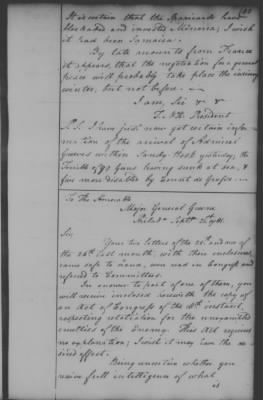 It is certain that the Spaniards have
blockaded and invested Minorca; I wish
it had been Jamaica.
By late accounts from France
it appears, that the negotiation for a general
peace will probably take place the ensuing
winter, but not before.
I am, Sir & &
T. M: President
P.S. I have just now got certain infor-
mation of the arrival of Admiral
Graves within Sandy Hook yesterday; the
Terrible of 74 Guns having sunk at sea, &
four more disabled by Count de Grasse
To The Honorable
Major General Greene
Philada Septr. 1781.
Sir,
Your two letters of the 25th and one of
the 26th last month, with their enclosures
came safe to hand, were read in Congress and
referred to Committees.
In answer to part of one of them, you
will receive inclosed herewith the copy of
an Act of Congress of the instant,
respecting retaliation for the unexampled
cruelties of the Enemy. This Act requires
no explanation; I wish it may have the de-
sired effect.
Being uncertain whether you
receive full intelligence of what
is